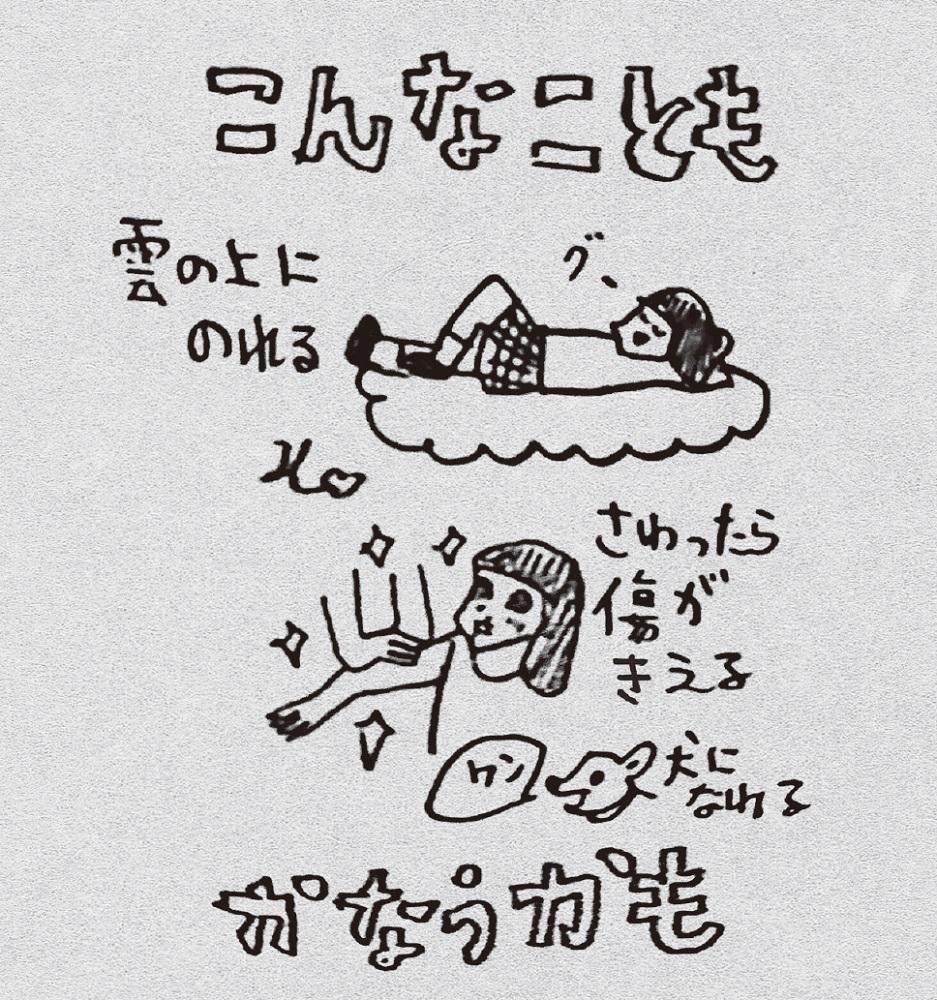 こんなことも
雲の上に
のれる
グ、
さわったら
傷が
きえる
ワン
犬に
なれる
かなうかも